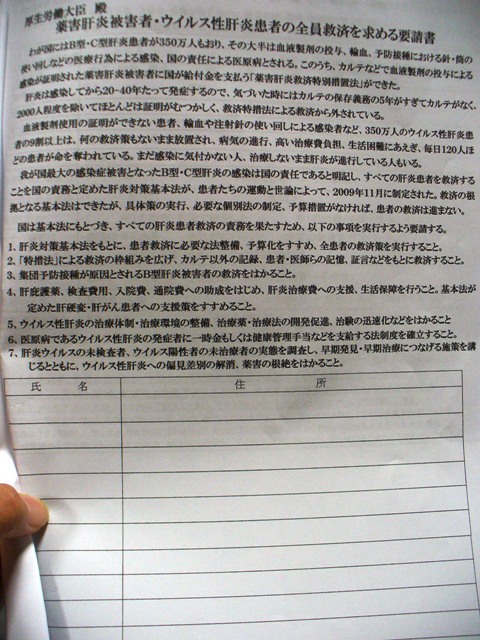 厚生労働大臣 殿
薬害肝炎被害者・ウイルス性肝炎患者の全員救済を求める要請書
わが国にはB型・C型肝炎患者が350万人もおり、その大半は血液製剤の投与、輸血、予防接種における針・筒の
使い回しなどの医療行為による感染、国の責任による医原病とされる。このうち、カルテなどで血液製剤の投与による
感染が証明された薬害肝炎被害者に国が給付金を支払う「薬害肝炎救済特別措置法」ができた。
肝炎は感染してから20-40年たって発症するので、気づいた時にはカルテの保存義務の5年がすぎてカルテがなく、
2000人程度を除いてほとんどは証明がむつかしく、救済特措法による救済から外されている。
血液製剤使用の証明ができない患者、輸血や注射針の使い回しによる感染者など、350万人のウイルス性肝炎患
者の9割以上は、何の救済策もないまま放置され、病気の進行、高い治療費負担、生活困難にあえぎ、毎日120人ほ
どの患者が命を奪われている。まだ感染に気付かない人、治療しないまま肝炎が進行している人もいる。
我が国最大の感染症被害となったB型・C型肝炎の感染は国の責任であると明記し、すべての肝炎患者を救済する
ことを国の責務と定めた肝炎対策基本法が、患者たちの運動と世論によって、2009年11月に制定された。救済の根
拠となる基本法はできたが、具体策の実行、必要な個別法の制定、予算措置がなければ、患者の救済は進まない。
国は基本法にもとづき、すべての肝炎患者救済の責務を果たすため、以下の事項を実行するよう要請する。
1、肝炎対策基本法をもとに、患者救済に必要な法整備、予算化をすすめ、全患者の救済策を実行すること。
2、「特措法」による救済の枠組みを広げ、カルテ以外の記録、患者・医師らの記憶、証言などをもとに救済すること。
3、集団予防接種が原因とされるB型肝炎被害者の救済をはかること。
4、肝庇護薬、検査費用、入院費、通院費への助成をはじめ、肝炎治療費への支援、生活保障を行うこと。基本法が
定めた肝硬変・肝がん患者への支援策をすすめること。
5、ウイルス性肝炎の治療体制・治療環境の整備、治療薬・治療法の開発促進、治験の迅速化などをはかること
6、医原病であるウイルス性肝炎の発症者に一時金もしくは健康管理手当などを支給する法制度を確立すること。
7、肝炎ウイルスの未検査者、ウイルス陽性者の未治療者の実態を調査し、早期発見・早期治療につなげる施策を講
じるとともに、ウイルス性肝炎への偏見差別の解消、薬害の根絶をはかること。
氏 名 住 所